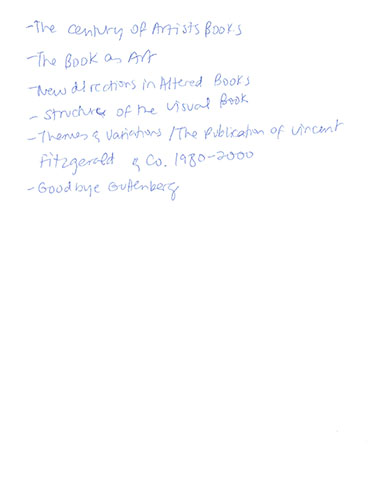 -The century of Artists Books
-The Book as Art
-New directions in Altered Books
- Structure of the Visual Book
-Themes & Variations / The Publication of Vincent
Fitzgerald & Co. 1980-2000
-Goodbye Guttenberg